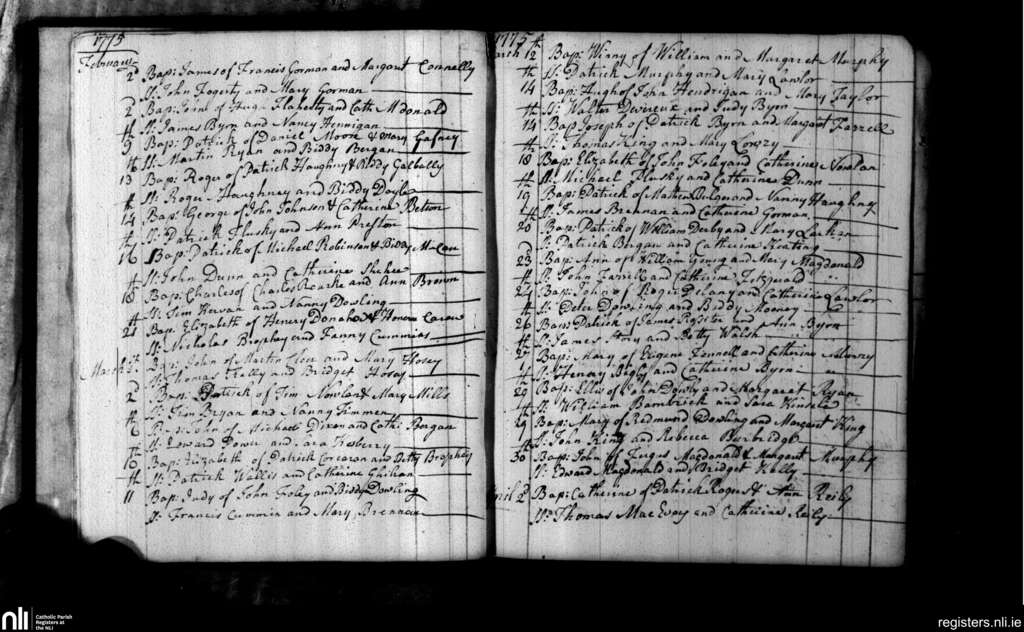 1775
February
2d Bap: James of Francis Gorman and Margaret Connolly
Sp. John Fogerty and Mary Gorman
2 Bap: of Hugh Flaherty and Cath: Mdonald
Sp. James Byrn and Nancy Hennigan
9 Bap: Patrick of Daniel Moore & Mary
Sp. Martin Ryan and Biddy Bergan
13 Bap: Roger of Patrick Haughny & Biddy Galbally
Sp. Roger Haughney and Biddy Doyle
14 Bap: George of John Johnson & Catherine Betson
Sp. Patrick Flusky and Ann Preston
16 Bap: Patrick of Michael Robinson & Biddy
Sp. John Dunn and Catherine
18 Bap: Charles of Charles Roarke and Ann Brenn
Sp. Tim Kervan and Nanny Dowling
21 Bap. Elizabeth of Henery Donahoe & Honora
Sp. Nicholas Brophy and Fanny Cummins
March Bap: John of Martin and Mary Hosey
Sp. Thomas Kelly and Bridget
2d Bap: Patrick of Tim Nowlan & Mary Mills
Sp. Tim Bryan and Nanny Timmon
6 Bap: John of Michael Dixon and Cath: Bergan
Sp. Edward Power and
10 Bap: Elizabeth of Patrick Corcoran and Betty Brophy
Sp. Patrick Wallis and Catherine
11 Bap: Judy of John Foley and Biddy Dowling
Sp. Francis Cummin and Mary Brennan
1775
March 12th Bap: Winny of William and Margaret Murphy
Sp. Patrick Murphy and Mary Lawlor
14 Bap: Hugh of John Hendrigan and Mary Taylor
Sp. Walter Devireux and Judy Byrn
14 Bap: Joseph of Patrick Byrn and Margaret Farrell
Sp. Thomas King and Mary
18 Bap: Elizabeth of John Foley and Catherine Nowlan
Sp. Michael Flusky and Catherine Dunn
19 Bap: Patrick of Mathew Bolger and Nanny Haughney
Sp. James Brennan and Catherine Gorman
20 Bap: Patrick of William Derby and Mary
Sp. Patrick Bergan and Catherine Keating
23 Bap: Ann of William Young and Mary Magdonald
Sp. John Farrell and Catherine Fitzgerald
24 Bap: John of Roger Delany and Catherine Lawlor
Sp. Peter Dowling and Biddy Mooney
26 Bap: Patrick of James & Ann Byrn
Sp. James and Betty Walsh
27 Bap: Mary of Eugene Fennell and Catherine
Sp. Henery and Catherine Byrn
29 Bap: of Peter Dowdy and Margaret Ryan
Sp. William Bambrick and Sara Kinsela
29 Bap: Mary of Redmond Dowling and Margaret King
Sp. John King and Rebecca Burbedge
30 Bap: John of Fergus Macdonald & Margaret Murphy
Sp. Edward Macdonald and Bridget Kelly
April 2d Bap: Catherine of Patrick Rogers & Ann Reily
Sp. Thomas Mac Evoy and Catherine Reily
nli
Catholic Parish
Registers at
the NLI
registers.nli.ie